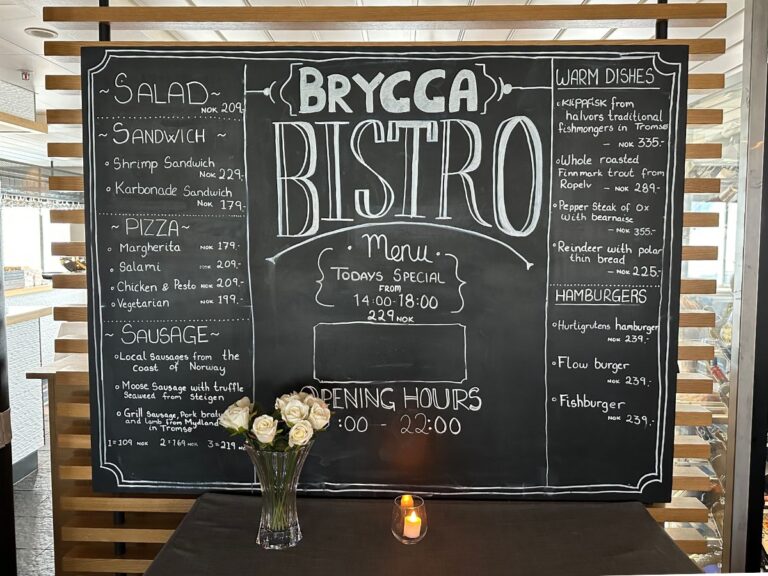 ~SALAD~
NOK 209,-
~SANDWICH~
Shrimp Sandwich
NOK 229,-
Karbonade Sandwich
NOK 179,-
~PIZZA~
Margherita NOK 179,-
Salami NOK 209,-
Chicken & Pesto NOK 209,-
Vegetarian NOK 199,-
~SAUSAGE~
Local Sausages from the
Coast of Norway
Moose Sausage with truffle
Seaweed from Steigen
Grill Sausage, Pork
and lamb from Mydland
in Tromsø
1=109 NOK 2=169 NOK 3=219 NOK
BRYGGA
BISTRO
Menu
TODAYS SPECIAL
FROM
14:00-18:00
229 NOK
OPENING HOURS
:00 - 22:00
WARM DISHES
KLIPPFISK from
halvors traditional
fishmongers in Tromsø
- NOK 335,-
Whole roasted
Finnmark trout from
Ropelv - NOK 289,-
Pepper Steak of Ox
with bearnaise
- NOK 355,-
Reindeer with polar
thin bread
- NOK 225,-
HAMBURGERS
Hurtigrutens hamburger
NOK 239,-
Flow burger
NOK 239,-
Fishburger
NOK 239,-